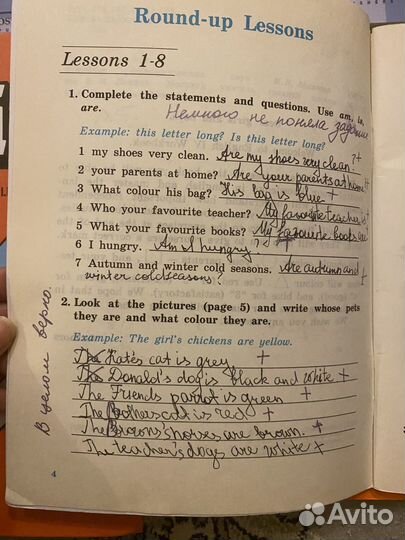 Round-up Lessons
Lessons 1-8
1. Complete the statements and questions. Use am, is,
are. Немного не поняла задание
Example: this letter long? Is this letter long?
1 my shoes very clean. Are my shoes very clean? ?+
2 your parents at home? Are your parents at home +
3 What colour his bag? His bag is blue +
4 Who your favourite teacher? My favourite teacher is
5 What your favourite books? My favourite books are
6 I hungry. Am I hungry. ?
7 Autumn and winter cold seasons. Are autumn and +
winter cold seasons?
2. Look at the pictures (page 5) and write whose pets
they are and what colour they are.
Example: The girl's chickens are yellow.
Kate's cat is grey +
Donald's dog is black and white +
The Friends parrot is green +
The Brothers cat is red +
The Browns horses are brown. +
The teacher's dogs are white +
В целом верно.
4
Avito